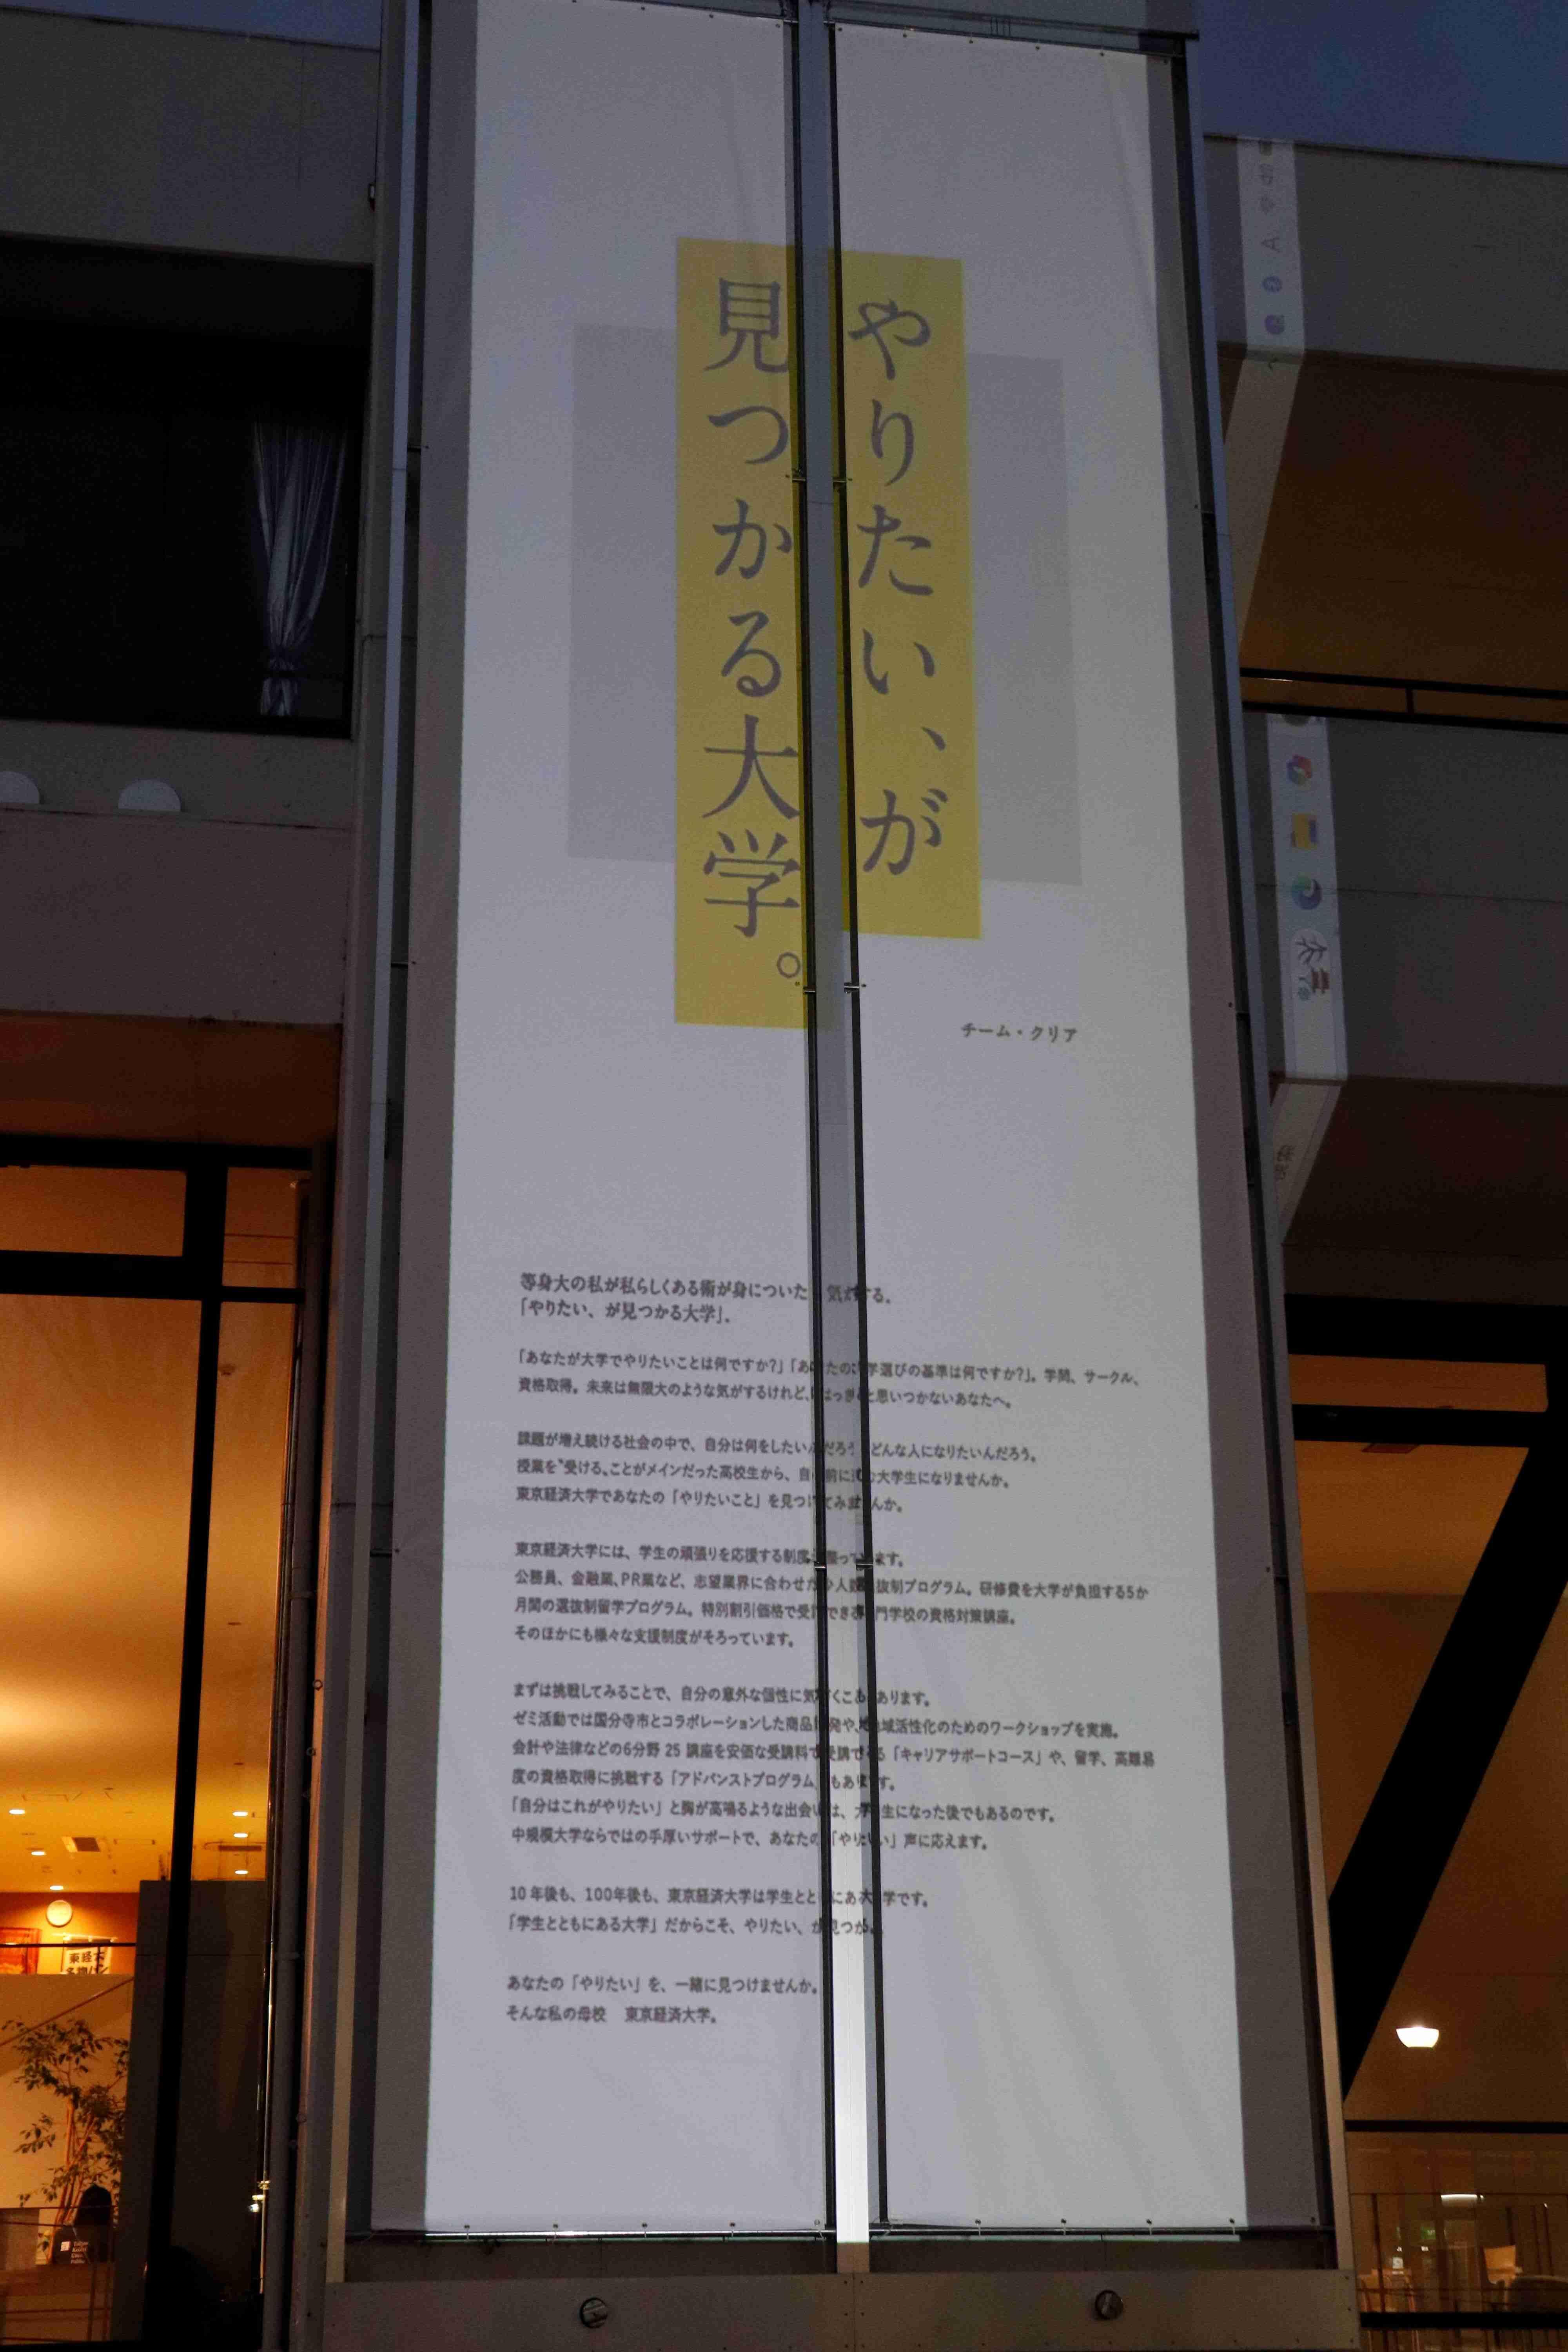 やりたい、が
見つかる大学。
チーム・クリア
等身大の私が私らしくある術が身についた 気がする。
「やりたい、が見つかる大学」。
「あなたが大学でやりたいことは何ですか?」「あなたの大学選びの基準は何ですか?」。学問、サークル、
資格取得。未来は無限大のような気がするけれど、はっきりと思いつかないあなたへ。
課題が増え続ける社会の中で、自分は何をしたいんだろう どんな人になりたいんだろう。
授業を〝受ける〟ことがメインだった高校生から、自 前に む大学生になりませんか。
東京経済大学であなたの「やりたいこと」を見つけてみませんか。
東京経済大学には、学生の頑張りを応援する制度が整っています。
公務員、金融業、PR業など、志望業界に合わせた少人数選抜制プログラム。研修費を大学が負担する5か
月間の選抜制留学プログラム。特別割引価格で受講できる専門学校の資格対策講座。
そのほかにも様々な支援制度がそろっています。
まずは挑戦してみることで、自分の意外な個性に気づくこともあります。
ゼミ活動では国分寺市とコラボレーションした商品開発や、地域活性化のためのワークショップを実施。
会計や法律などの6分野 25 講座を安価な受講料で受講できる「キャリアサポートコース」や、留学、高難易
度の資格取得に挑戦する「アドバンストプログラム」もあります。
「自分はこれがやりたい」と胸が高鳴るような出会いは、大学生になった後でもあるのです。
中規模大学ならではの手厚いサポートで、あなたの「やりたい」声に応えます。
10 年後も、100年後も、東京経済大学は学生とともにある大学です。
「学生とともにある大学」だからこそ、やりたい、が見つかる。
あなたの「やりたい」を、一緒に見つけませんか。
そんな私の母校 東京経済大学。
東経大